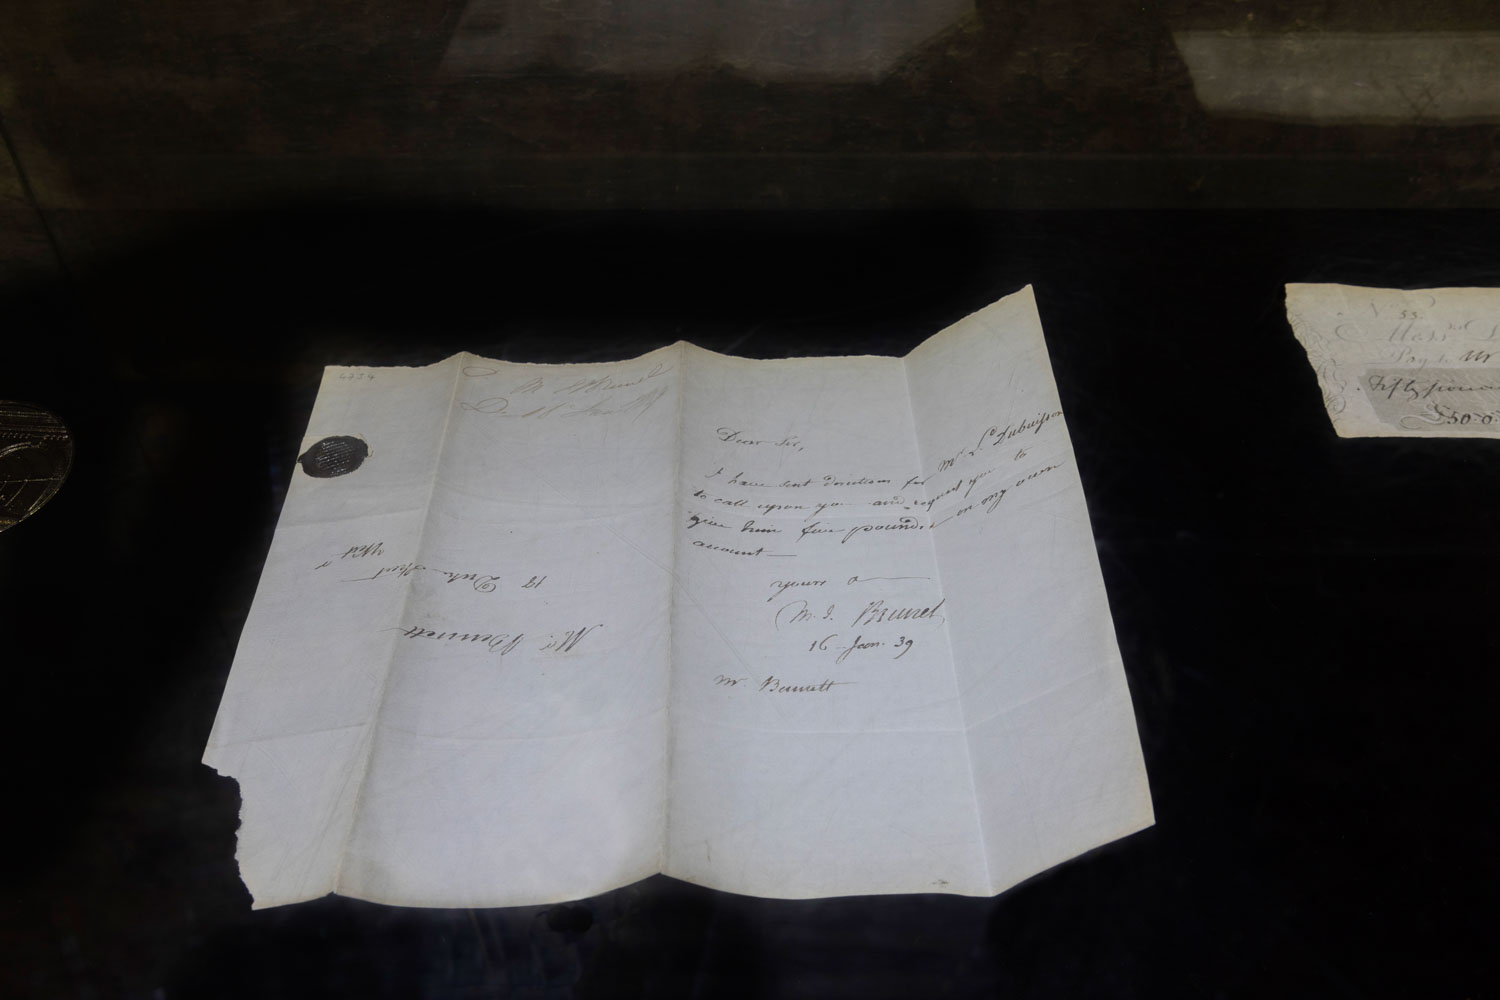 6234
M I Brunel
Dear Sir,
I have sent directions for Mr. Ld. Dubuisson
to call upon you and request you to
give him five pounds on my own
account
yours
M. I. Brunel
16 Jan. 39
Mr. Bennett
Mr. Bennett
17 Duke Street
53.
Mess
Pay to Mr
Fifty pound
£50.0.